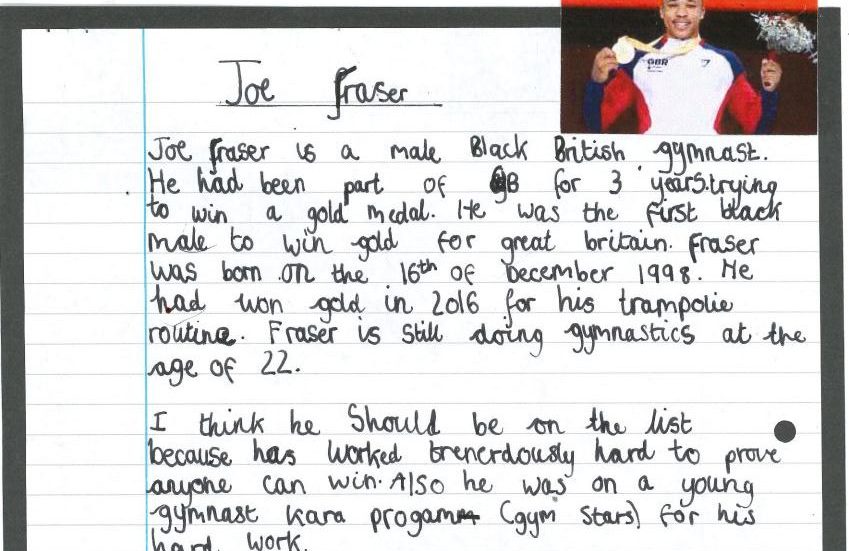 GBR
Joe Fraser
Joe fraser is a male Black British gymnast.
He had been part of GB for 3 years.trying
to win a gold medal. He was the first black
male to win gold for great britain. Fraser
was born on the 16th of December 1998. He
had won gold in 2016 for his trampolie
routine. Fraser is still doing gymnastics at the
age of 22.
I think he Should be on the list
because has worked trenerdously hard to prove
anyone can win. Also he was on a young
gymnast kara progam (gym Stars) for his
hard work.